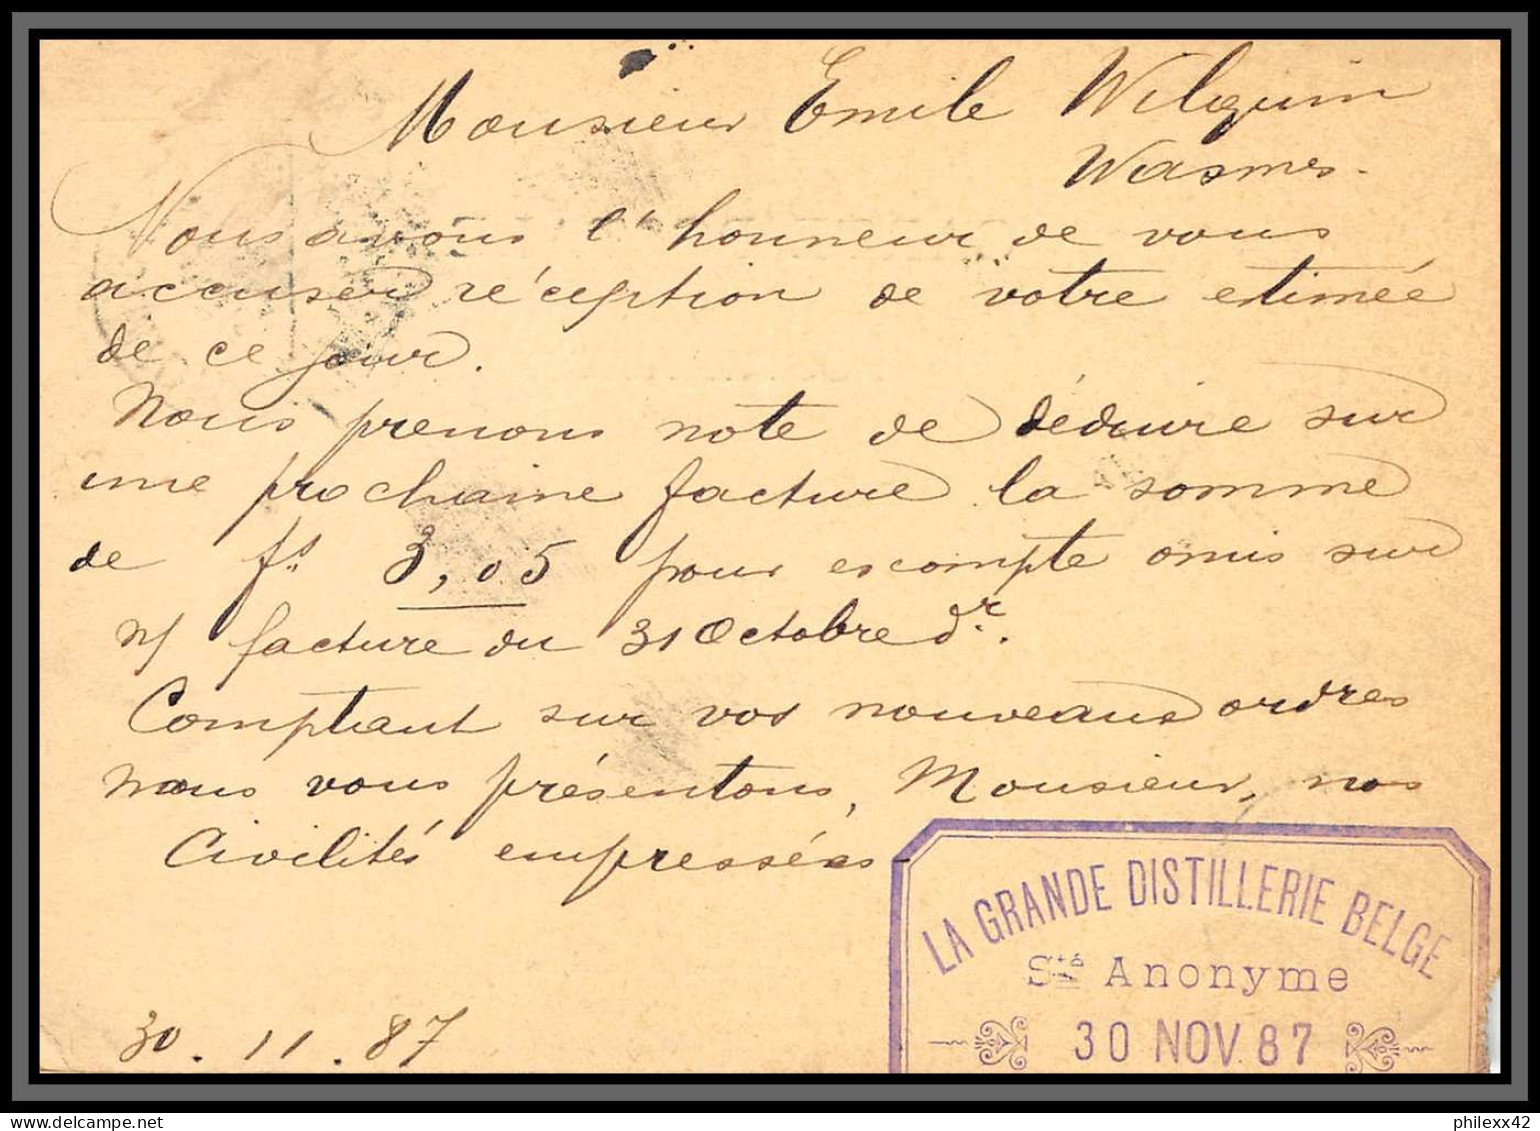 Monsieur Emile Wilquin
Wasmes.
Nous avons l'honneur de vous
accuser réception de votre estimée
de ce jour.
Nous prenons note de déduire sur
une prochaine facture la somme
de fs 3,05 pour escompte omis sur
n/ facture du 31 Octobre dr.
Comptant sur vos nouveaux ordres
nous vous présentons, Monsieur, nos
Civilités empressées
LA GRANDE DISTILLERIE BELGE
Sté Anonyme
30 NOV. 87
30 . 11 . 87
philexx42